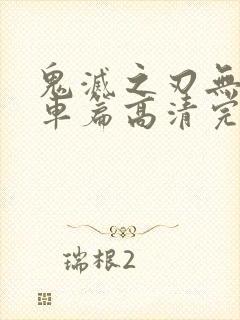 鬼滅之刃無
車篇高清完
瑞根2